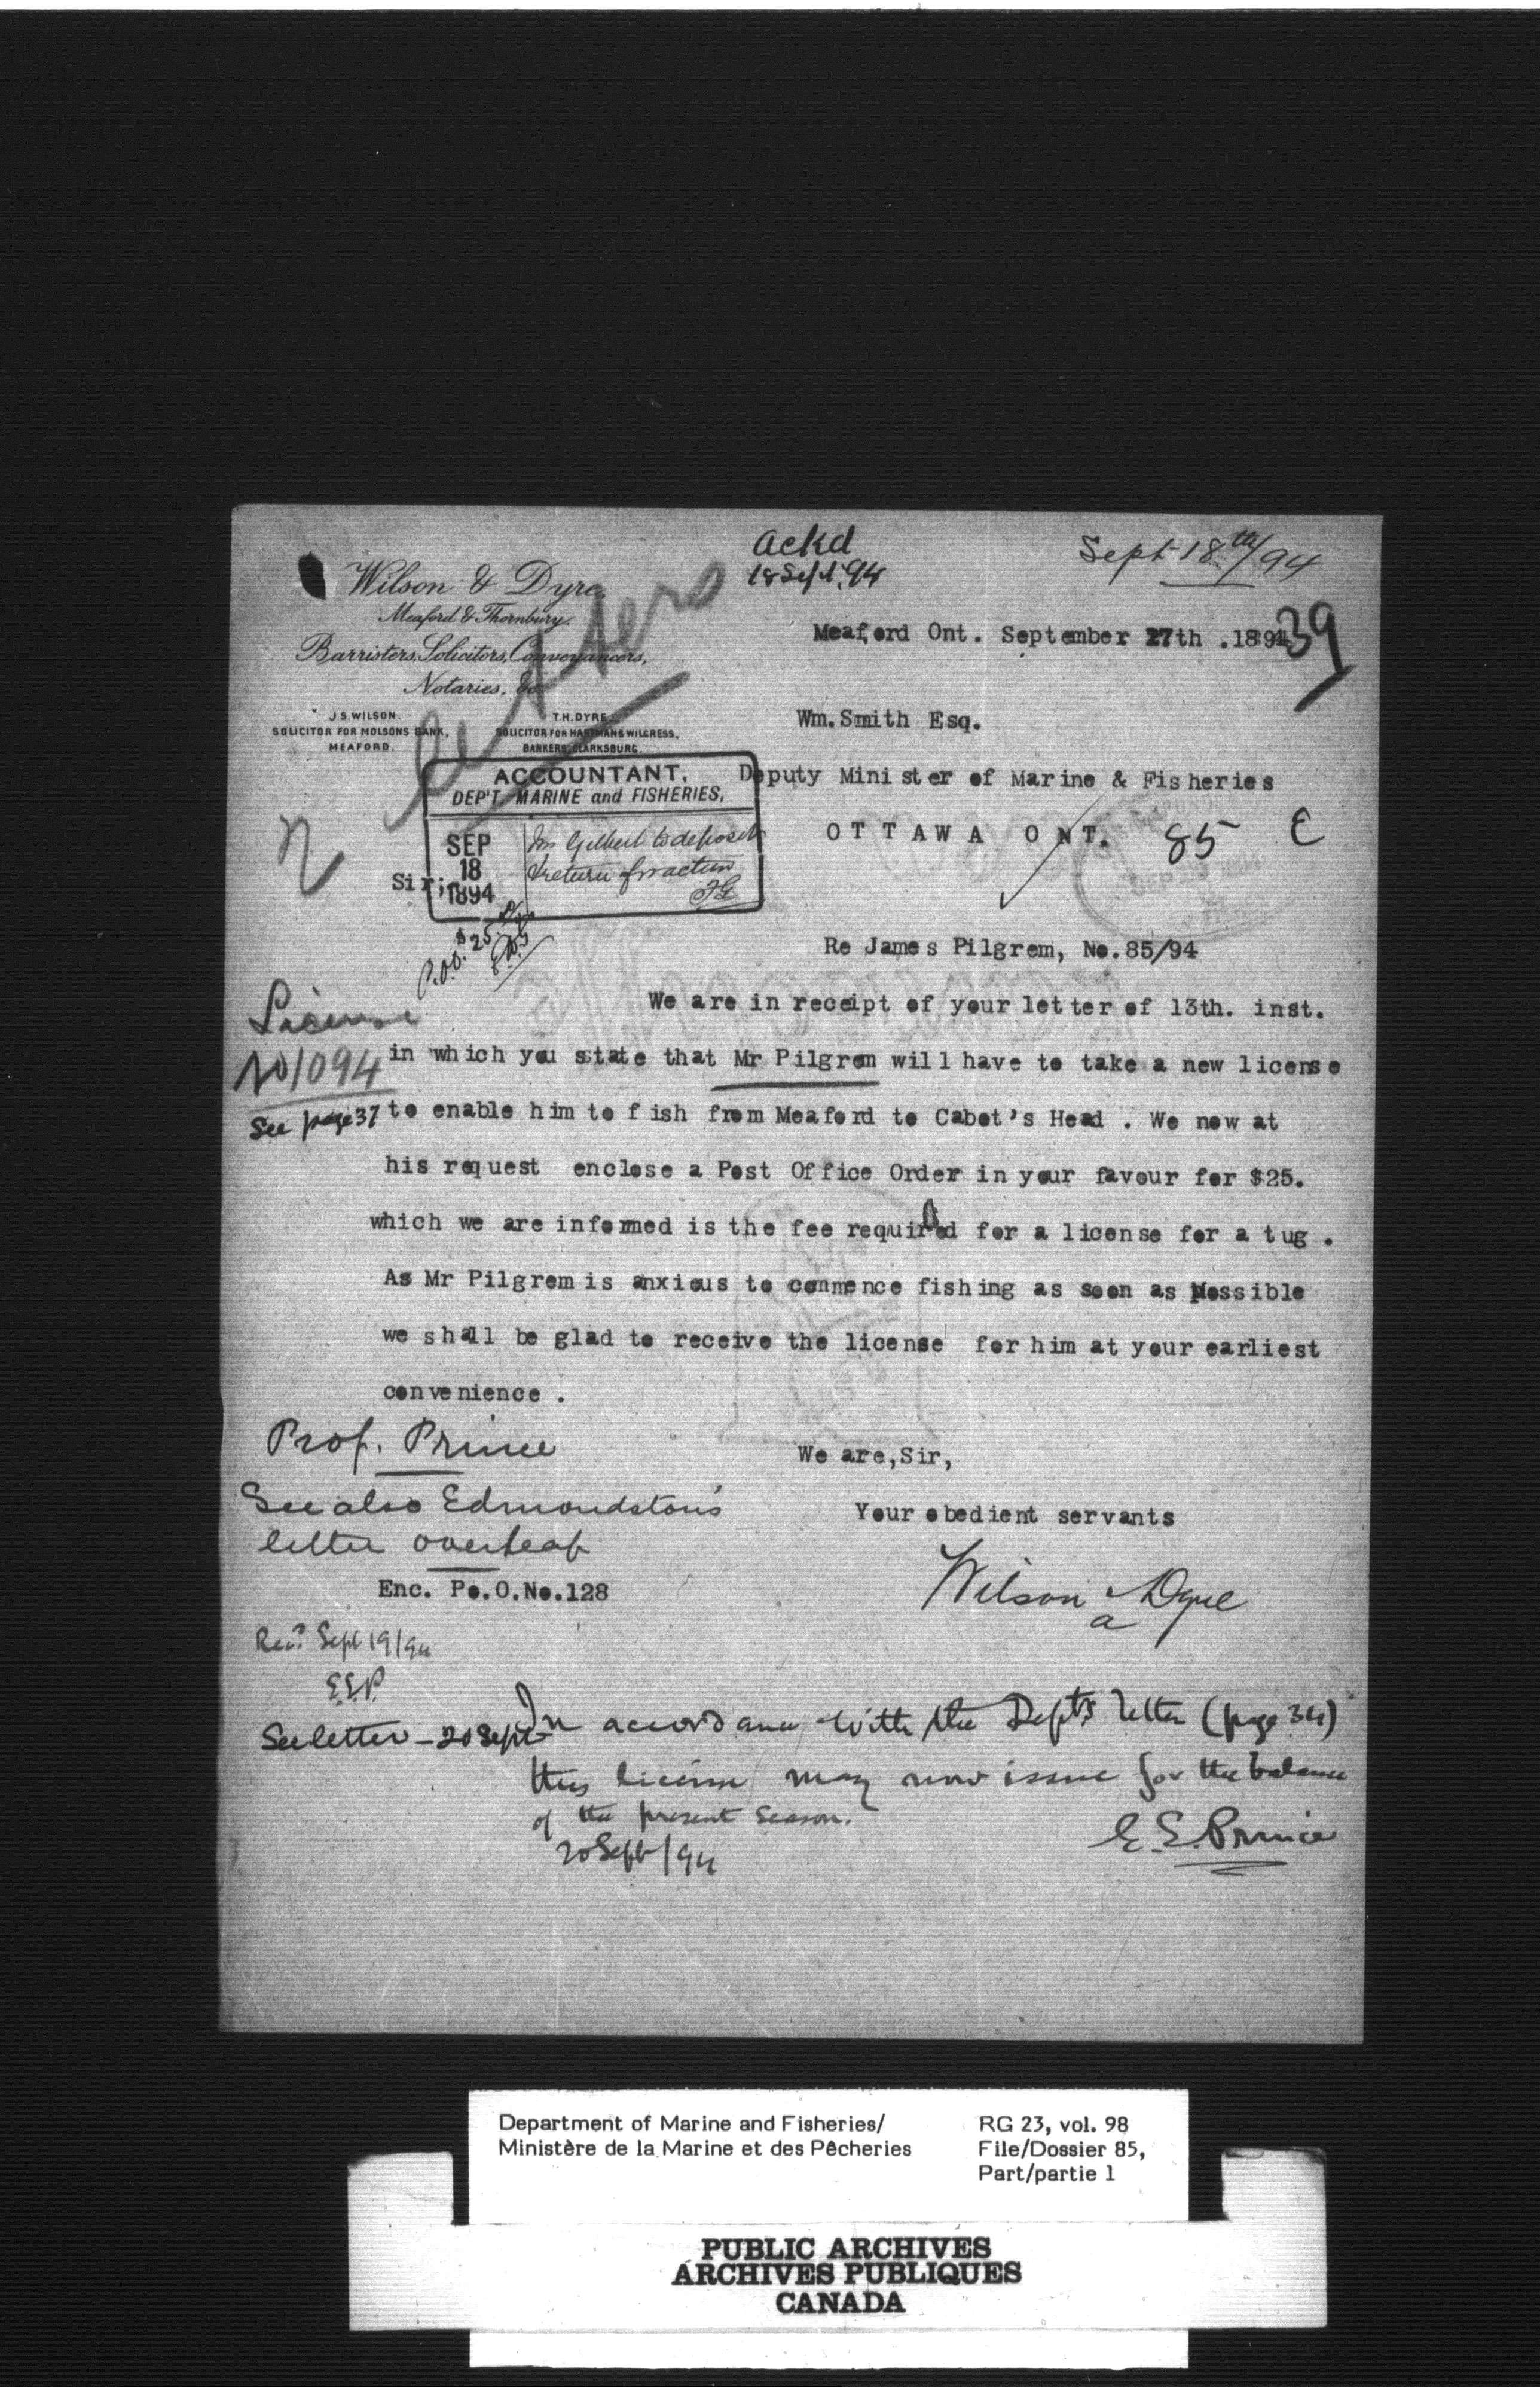 Ackd
18 Sept. 94
Sept 18th/94
Wilson & Dyre,
Meaford & Thornbury.
Barristers, Solicitors, Conveyancers,
Notaries, &c
J.S. WILSON.
SOLICITOR FOR MOLSONS BANK,
MEAFORD.
T.H. DYRE.
SOLICITOR FOR HARTMAN & WILGRESS,
BANKERS, CLARKSBURG.
Meaford Ont. September 17th .1894
39
Wm. Smith Esq.
Deputy Minister of Marine & Fisheries
OTTAWA ONT.
85 E
ACCOUNTANT,
DEP'T. MARINE and FISHERIES,
SEP
18
1894
Mr Gilbert to deposit
& return for action
FG
Sir;
P.O.O. $25.
Re James Pilgrem, No. 85/94
We are in receipt of your letter of 13th. inst.
in which you sstate that Mr Pilgrem will have to take a new license
to enable him to fish from Meaford to Cabot's Head . We now at
his request enclose a Post Office Order in your favour for $25.
which we are informed is the fee required for a license for a tug .
As Mr Pilgrem is anxious to commence fishing as soon as possible
we shall be glad to receive the license for him at your earliest
convenience .
License
No 1094
See page 37
We are, Sir,
Your obedient servants
Wilson & Dyre
Prof. Prince
See also Edmondston's
letter overleaf
Enc. Po.O.No.128
Recd Sept 19/94
E.E.P.
See letter - 20 Sept
In accordance with the Dept's letter (page 34)
this license may now issue for the balance
of the present season.
20 Sept/94
E. E. Prince
Department of Marine and Fisheries/
Ministère de la Marine et des Pêcheries
RG 23, vol. 98
File/Dossier 85,
Part/partie 1
PUBLIC ARCHIVES
ARCHIVES PUBLIQUES
CANADA